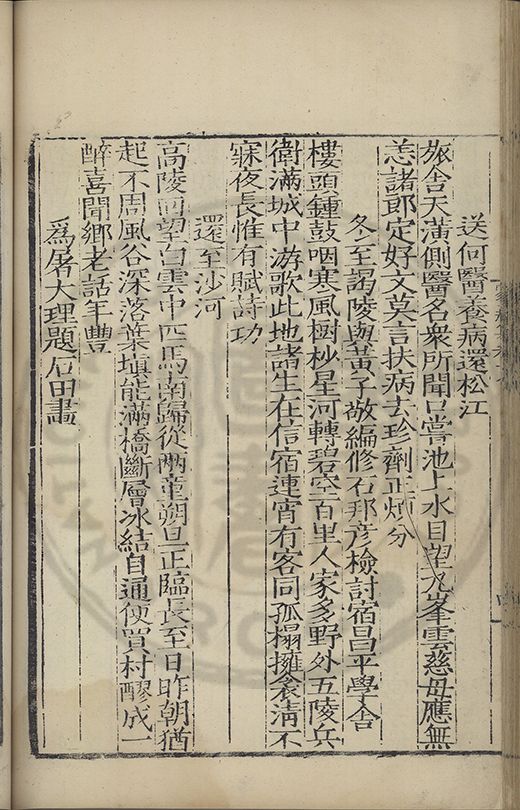 送何醫養病還松江
旅舍天潢側醫名衆所聞口嘗池上水目望九峯雲慈母應無
恙諸郎定好文莫言扶病去珍劑正煩分
冬至謁陵與黃子敬編修石邦彥檢討宿昌平學舍
樓頭鍾鼓咽寒風樹杪星河轉碧空百里人家多野外五陵兵
衛滿城中游歌此地諸生在信宿連宵有客同孤榻擁衾淸不
寐夜長惟有賦詩功
還至沙河
高陵回望白雲中匹馬南歸從兩童朔旦正臨長至日昨朝猶
起不周風谷深落葉塡能滿橋斷層冰結自通便買村醪成一
醉喜聞鄉老話年豐
爲屠大理題石田畫